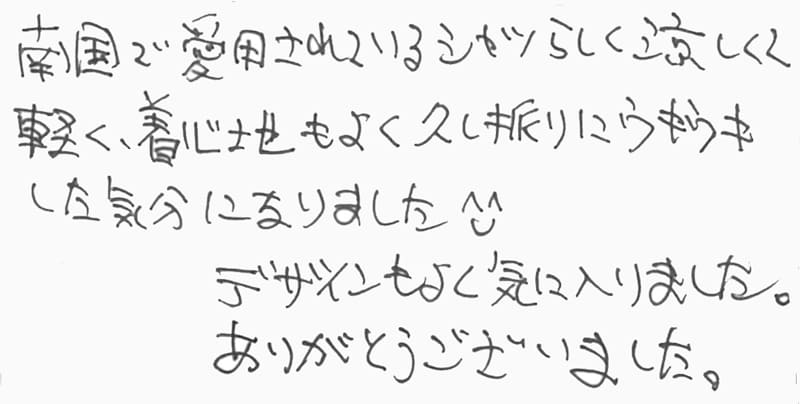 南国で愛用されているシャツらしく涼しくて
軽く、着心地もよく久し振りにウキウキ
した気分になりました^^
デザインもよく気に入りました。
ありがとうございました。